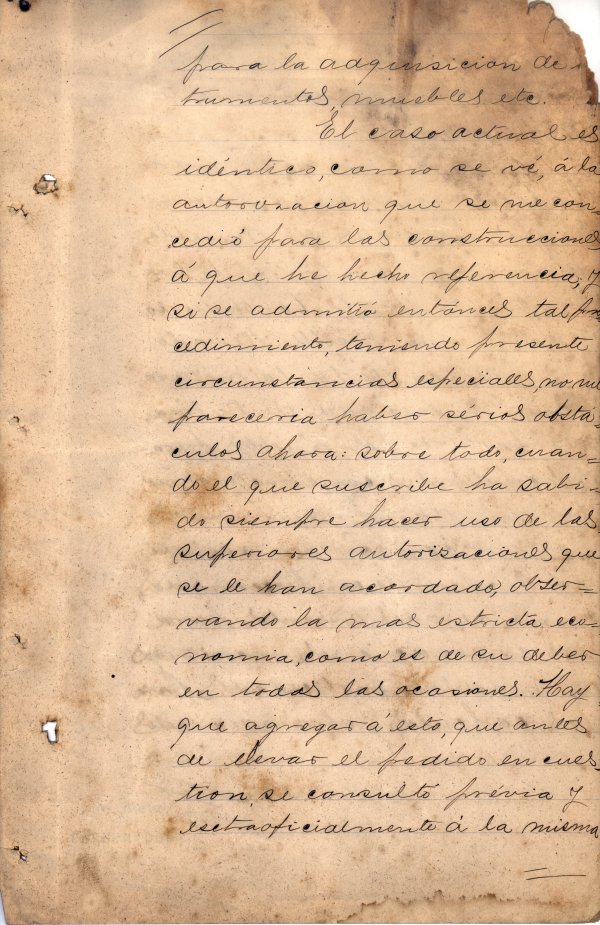 para la adquisicion de
trumentos, muebles etc.
El caso actual es
idéntico, como se vé, á la
autorizacion que se me con-
cedió para las construcciones
á que he hecho referencia; y
si se admitió entónces tal pro-
cedimiento, teniendo presente
circunstancias especiales, no me
pareceria haber sérios obstá-
culos ahora: sobre todo, cuan-
do el que suscribe ha sabi-
do siempre hacer uso de las
superiores autorizaciones que
se le han acordado, obser-
vando la mas estricta eco-
nomia, como es de su deber
en todas las ocasiones. Hay
que agregar á esto, que antes
de elevar el pedido en cues-
tion, se consultó prévia y
esctraoficialmente á la misma